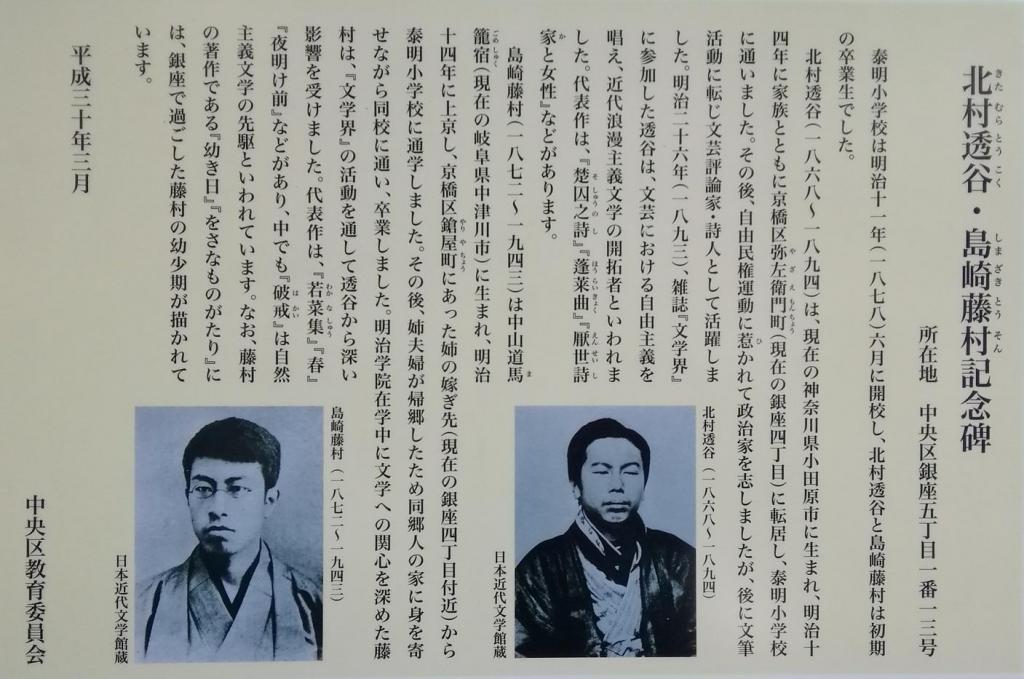 北村透谷・島崎藤村記念碑
きたむらとうこく しまざきとうそん
所在地 中央区銀座五丁目一番一三号
泰明小学校は明治十一年(一八七八)六月に開校し、北村透谷と島崎藤村は初期
の卒業生でした。
北村透谷(一八六八〜一八九四)は、現在の神奈川県小田原市に生まれ、明治十
四年に家族とともに京橋区弥左衛門町(現在の銀座四丁目)に転居し、泰明小学校
やざえもんちょう
に通いました。その後、自由民権運動に惹かれて政治家を志しましたが、後に文筆
ひ
活動に転じ文芸評論家・詩人として活躍しま
した。明治二十六年(一八九三)、雑誌『文学界』
に参加した透谷は、文芸における自由主義を
唱え、近代浪漫主義文学の開拓者といわれま
した。代表作は、『楚囚之詩』『蓬莱曲』『厭世詩
そしゅうのし ほうらいきょく えんせいし
家と女性』などがあります。
か
島崎藤村(一八七二〜一九四三)は中山道馬
ま
籠宿(現在の岐阜県中津川市)に生まれ、明治
ごめしゅく
十四年に上京し、京橋区鎗屋町にあった姉の嫁ぎ先(現在の銀座四丁目付近)から
やりやちょう
泰明小学校に通学しました。その後、姉夫婦が帰郷したため同郷人の家に身を寄
せながら同校に通い、卒業しました。明治学院在学中に文学への関心を深めた藤
村は、『文学界』の活動を通して透谷から深い
影響を受けました。代表作は、『若菜集』『春』
わかなしゅう
『夜明け前』などがあり、中でも『破戒』は自然
はかい
主義文学の先駆といわれています。なお、藤村
の著作である『幼き日』『をさなものがたり』に
は、銀座で過ごした藤村の幼少期が描かれて
います。
平成三十年三月
中央区教育委員会
北村透谷(一八六八〜一八九四)
日本近代文学館蔵
島崎藤村(一八七二〜一九四三)
日本近代文学館蔵